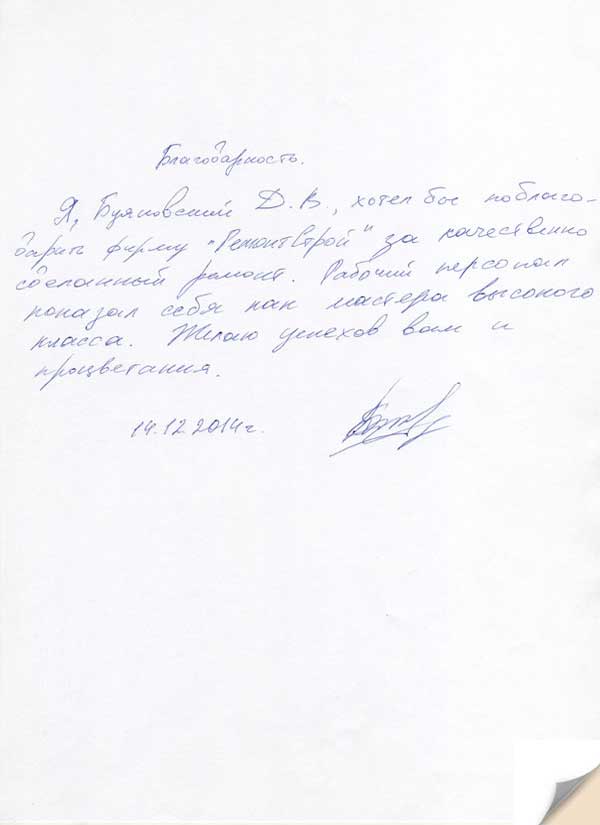 Благодарность.
Я, Буяновский Д.В., хотел бы поблаго-
дарить фирму "РемонтСтрой" за качественно
сделанный ремонт. Рабочий персонал
показал себя как мастера высокого
класса. Желаю успехов вам и
процветания.
14.12.2014г.